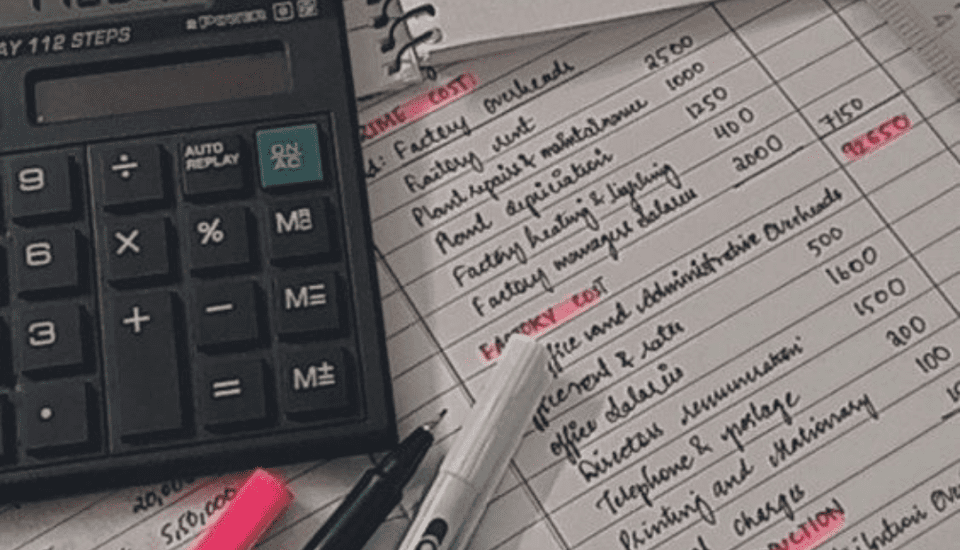 AY 112 STEPS
9 ÷ AUTO REPLAY ON AC
6 × % M
3 + − M=
. = M±
RIME COST
d: Factory overheads
Factory rent 2500
Plant repairs & maintainance 1000
Plant depriciation 1250
Factory heating & lighting 400
Factory manager salaries 2000 7150
FACTORY COST 92650
ffice and Administrative Overheads
ffice rent & rates 500
office salaries 1600
Directors remuneration 1500
Telephone & postage 200
Printing and stationary 100
charges
UCTION
ribution Ove
20,000
5,50,000